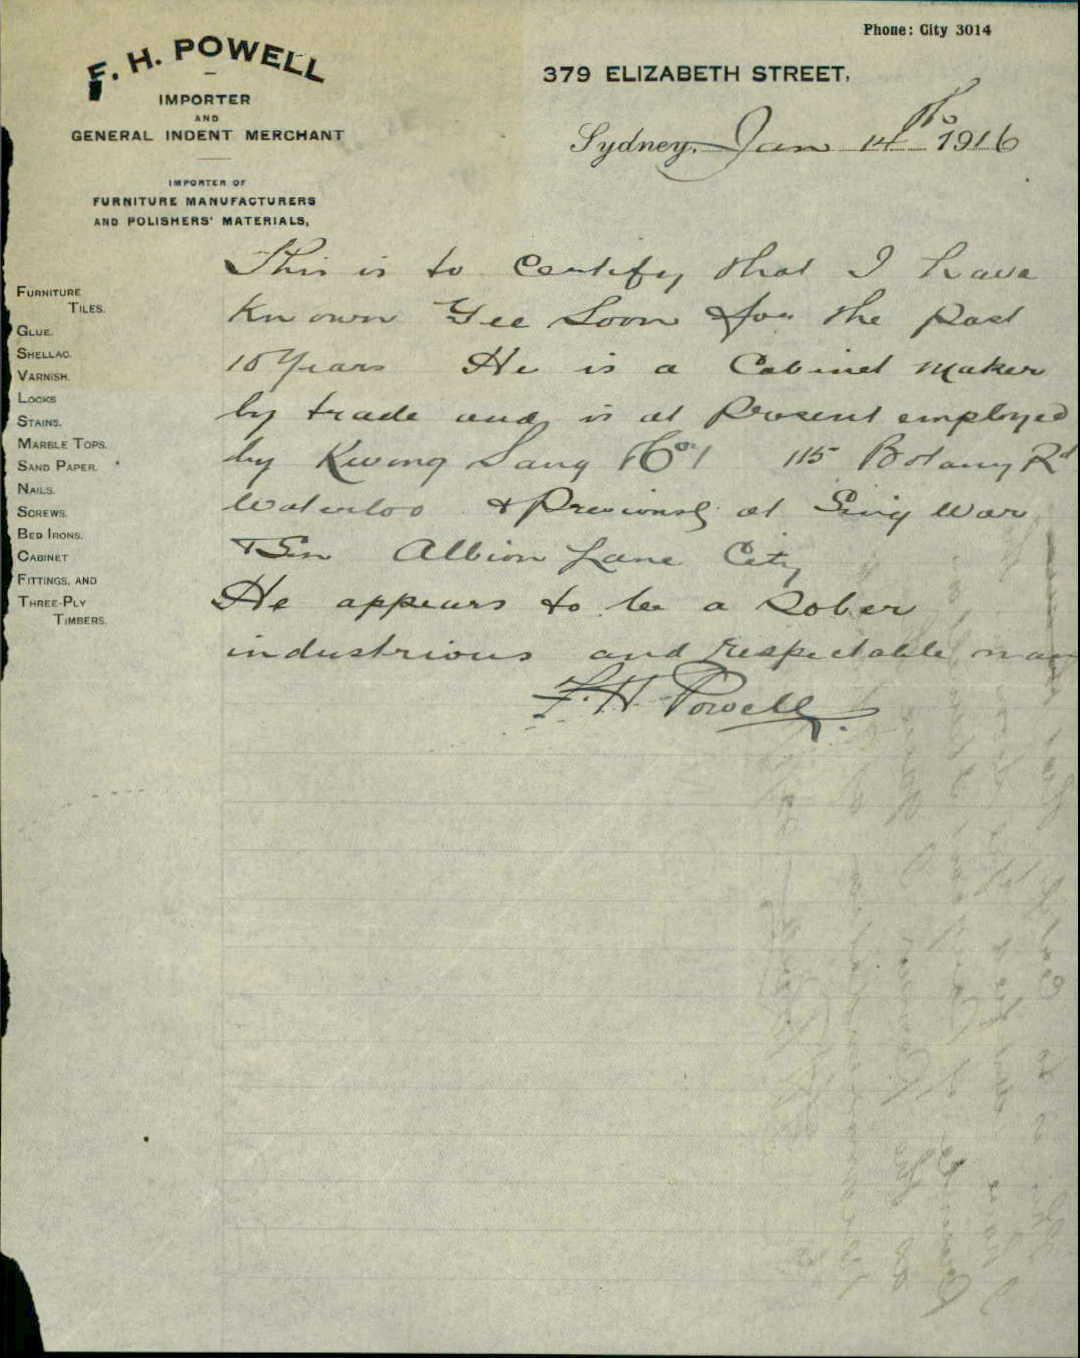 F. H. POWELL
IMPORTER
AND
GENERAL INDENT MERCHANT
IMPORTER OF
FURNITURE MANUFACTURERS
AND POLISHERS' MATERIALS,
Phone: City 3014
379 ELIZABETH STREET,
Sydney, Jan 14th 1916
FURNITURE
TILES.
GLUE.
SHELLAC.
VARNISH.
LOCKS
STAINS.
MARBLE TOPS.
SAND PAPER.
NAILS.
SCREWS.
BED IRONS.
CABINET
FITTINGS, AND
THREE-PLY
TIMBERS.
This is to certify that I have
known Gee Soon for the past
10 Years He is a Cabinet maker
by trade and is at Present employed
by Kwong Sang 115 Botany Rd
Waterloo & Previously at Sing War
Albion Lane City
He appears to be a Sober
industrious and respectable man
F. H. Powell.